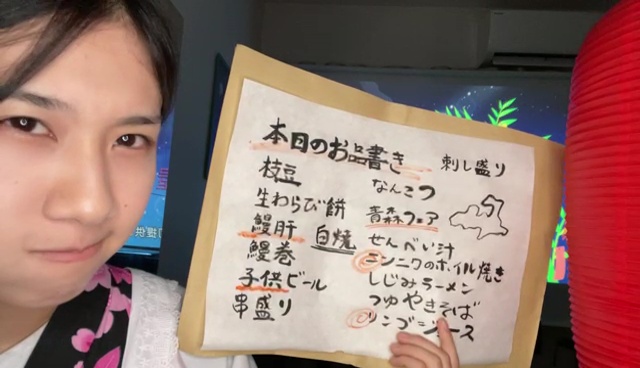 本日のお品書き
枝豆
生わらび餅
鰻肝 白焼
鰻巻
子供ビール
串盛り
刺し盛り
なんこつ
青森フェア
せんべい汁
ニンニクのホイル焼き
しじみラーメン
つゆやきそば
リンゴジュース